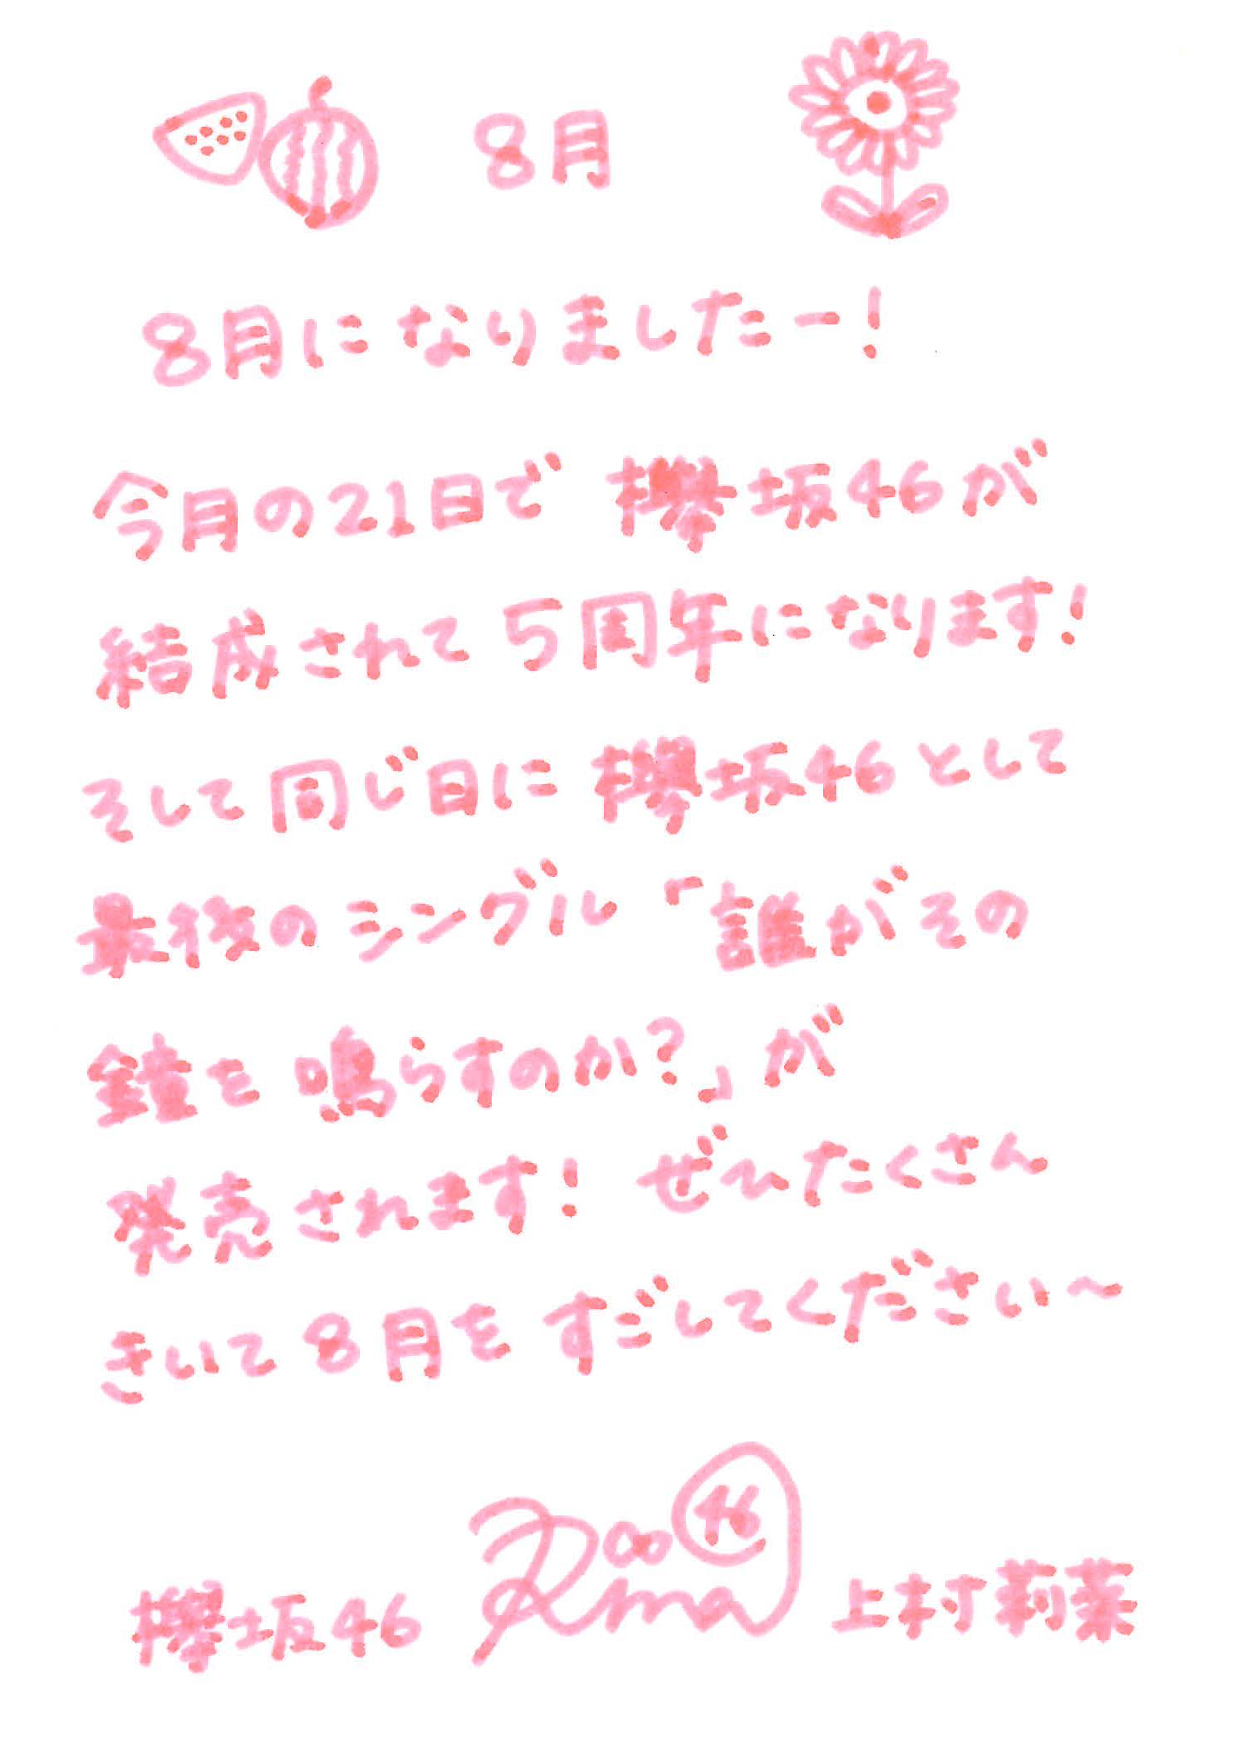 8月
8月になりましたー!
今月の21日で 欅坂46が
結成されて5周年になります!
そして同じ日に欅坂46として
最後のシングル「誰がその
鐘を鳴らすのか?」が
発売されます! ぜひたくさん
きいて8月をすごしてください〜
46
欅坂46 Rina 上村莉菜